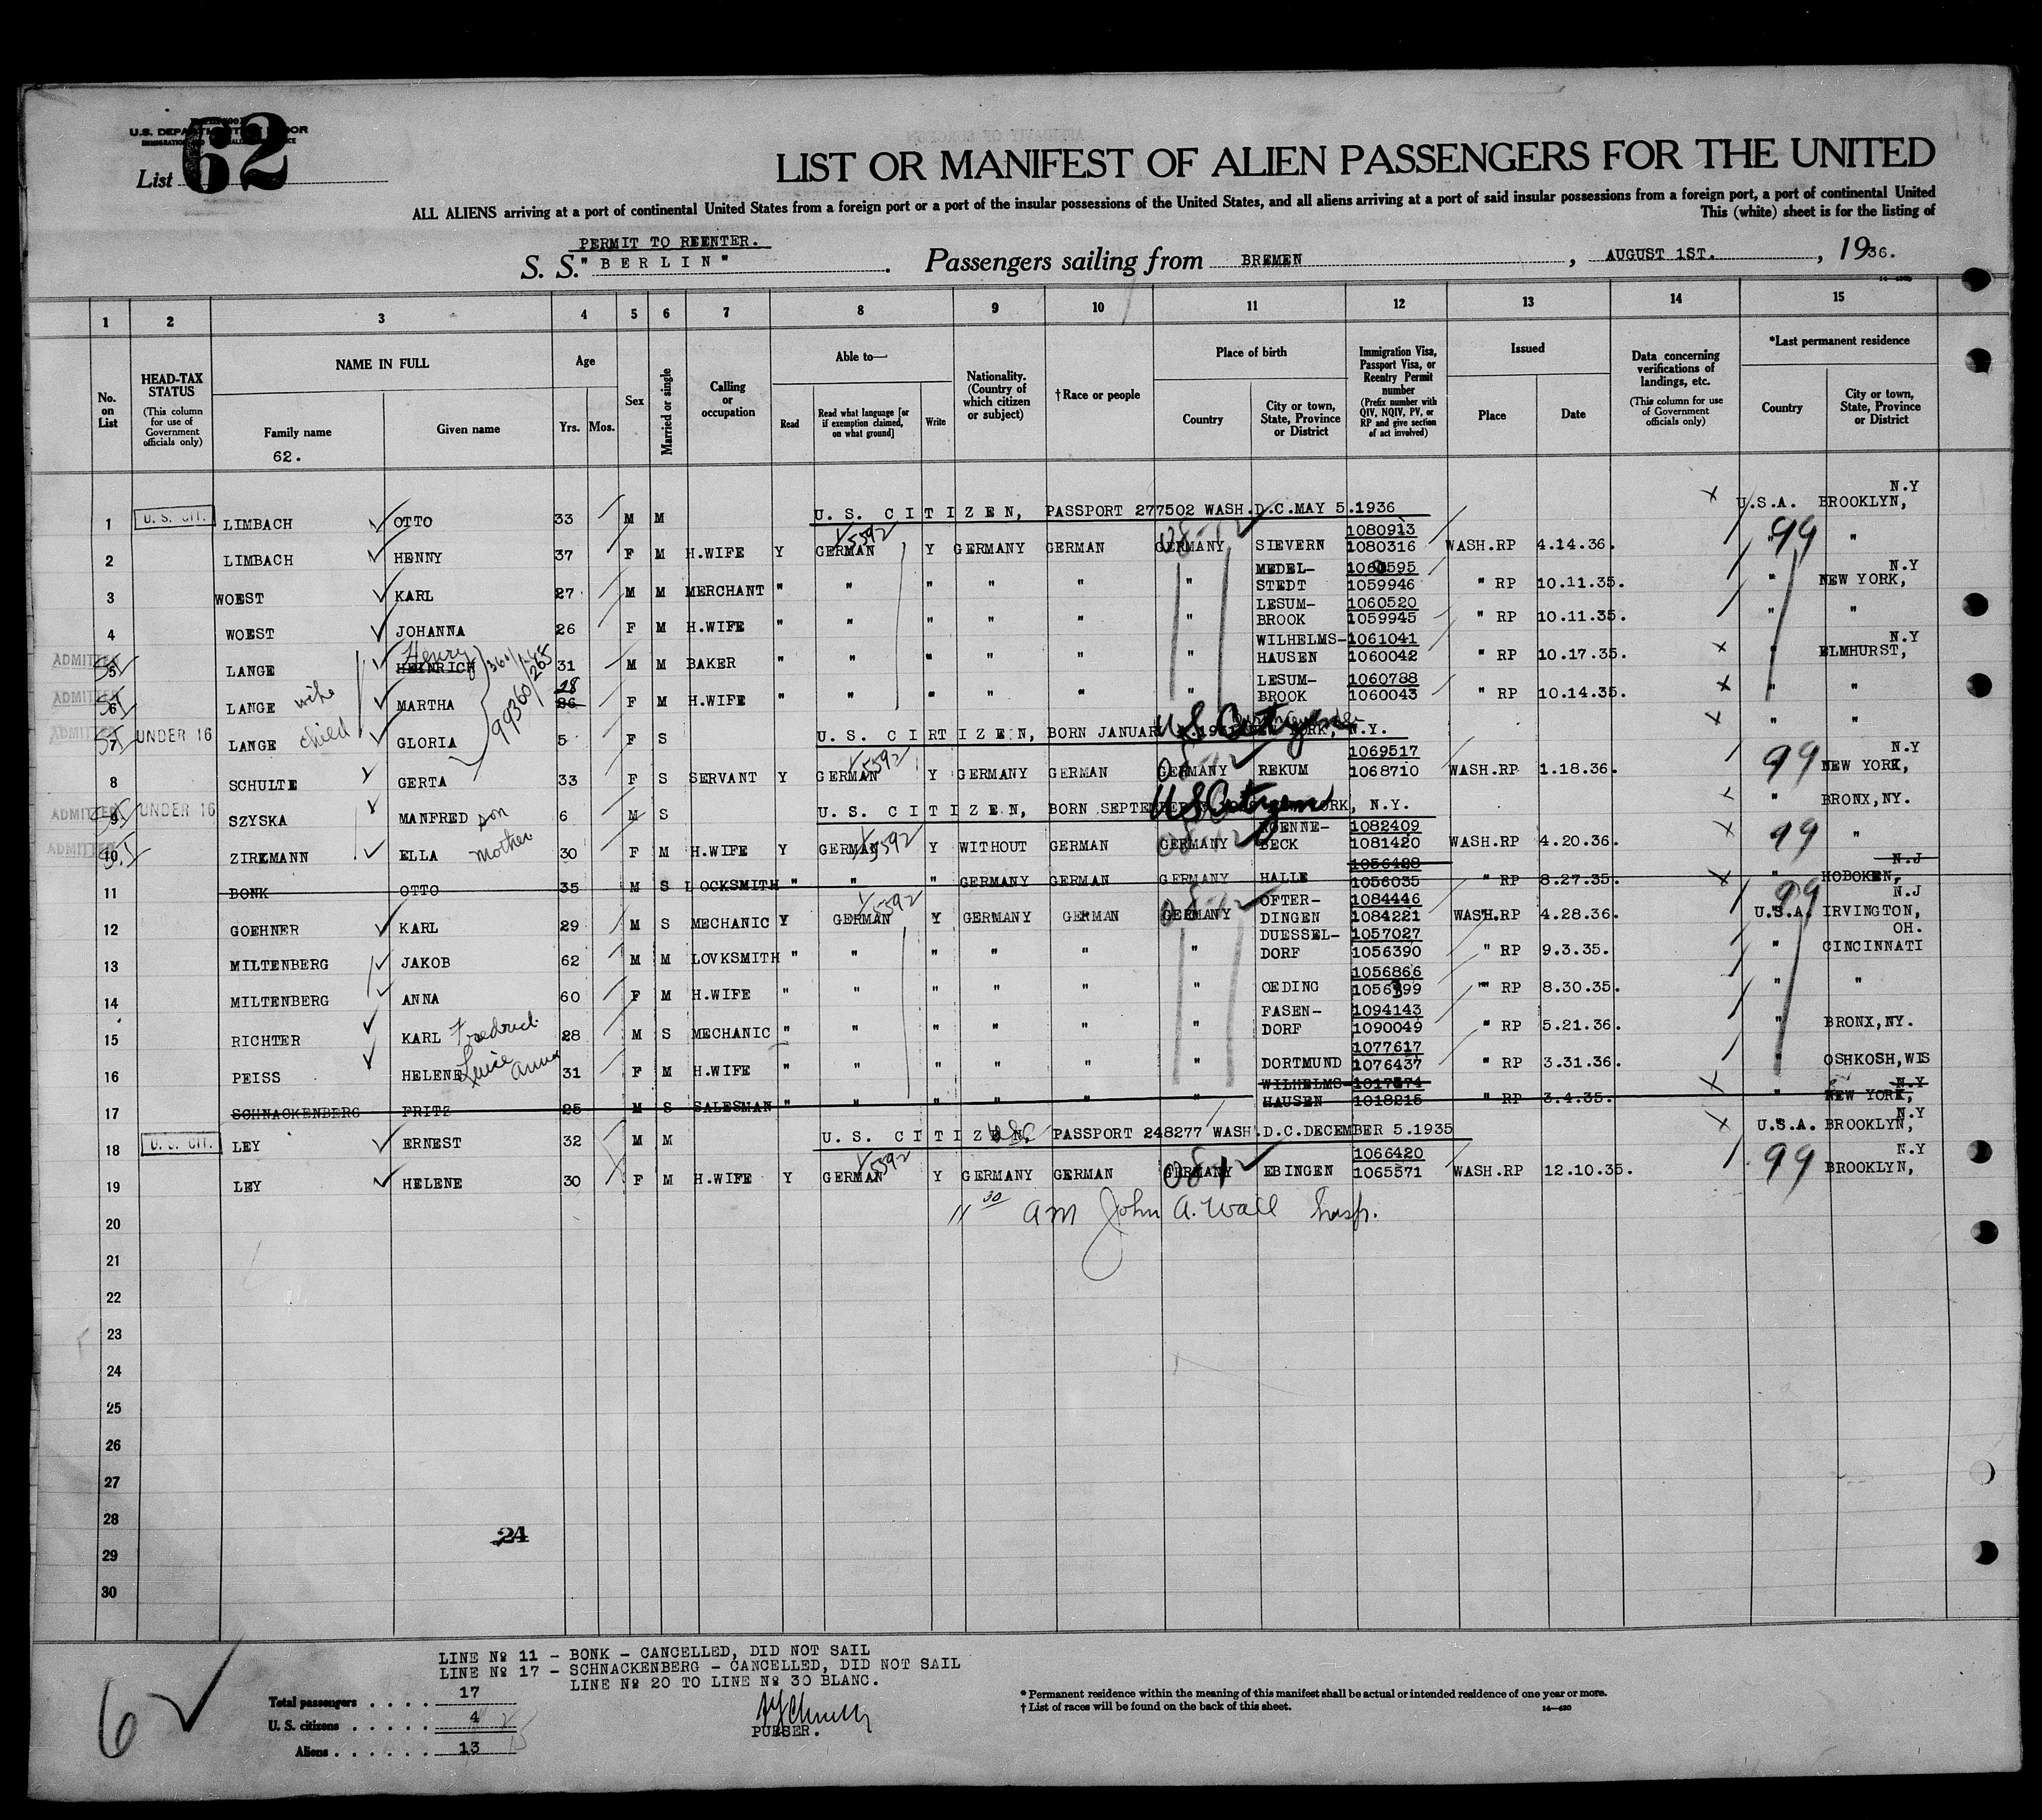 U.S. DEPARTMENT OF LABOR
List 62
LIST OR MANIFEST OF ALIEN PASSENGERS FOR THE UNITED
ALL ALIENS arriving at a port of continental United States from a foreign port or a port of the insular possessions of the United States, and all aliens arriving at a port of said insular possessions from a foreign port, a port of continental United
This (white) sheet is for the listing of
PERMIT TO REENTER.
S. S. "BERLIN" . Passengers sailing from BREMEN , AUGUST 1ST. , 1936.
1 2 3 4 5 6 7 8 9 10 11 12 13 14 15
No. on List
HEAD-TAX STATUS (This column for use of Government officials only)
NAME IN FULL Family name Given name
62.
Age Yrs. Mos.
Sex
Married or single
Calling or occupation
Able to— Read Read what language [or if exemption claimed, on what ground] Write
Nationality. (Country of which citizen or subject)
†Race or people
Place of birth Country City or town, State, Province or District
Immigration Visa, Passport Visa, or Reentry Permit number (Prefix number with QIV, NQIV, PV, or RP and give section of act involved)
Issued Place Date
Data concerning verifications of landings, etc. (This column for use of Government officials only)
*Last permanent residence Country City or town, State, Province or District
1 U. S. CIT. LIMBACH OTTO 33 M M U. S. CITIZEN, PASSPORT 277502 WASH.D.C.MAY 5.1936 U.S.A. BROOKLYN, N.Y
2 LIMBACH HENNY 37 F M H.WIFE Y GERMAN Y GERMANY GERMAN GERMANY SIEVERN 1080913 1080316 WASH.RP 4.14.36. " 99 "
3 WOEST KARL 27 M M MERCHANT " " " " " " MEDEL-STEDT 1060595 1059946 " RP 10.11.35. " NEW YORK, N.Y
4 WOEST JOHANNA 26 F M H.WIFE " " " " " " LESUM-BROOK 1060520 1059945 " RP 10.11.35. " "
ADMITTED 5 LANGE HEINRICH Henry 31 M M BAKER " " " " " " WILHELMS-HAUSEN 1061041 1060042 " RP 10.17.35. " ELMHURST, N.Y
ADMITTED 6 LANGE wife MARTHA 36 28 F M H.WIFE " " " " " " LESUM-BROOK 1060788 1060043 " RP 10.14.35. " "
99360/265
ADMITTED 7 UNDER 16 LANGE child GLORIA 5 F S U. S. CIRTIZEN, BORN JANUAR YORK, N.Y. US Citizen " "
8 SCHULTE GERTA 33 F S SERVANT Y GERMAN Y GERMANY GERMAN GERMANY REKUM 1069517 1068710 WASH.RP 1.18.36. 99 NEW YORK, N.Y
ADMITTED 9 UNDER 16 SZYSKA MANFRED son 6 M S U. S. CITIZEN, BORN SEPTEMBER YORK, N.Y. US Citizen " BRONX,NY.
ADMITTED 10 ZIRKMANN ELLA mother 30 F M H.WIFE Y GERMAN Y WITHOUT GERMAN GERMANY ROENNE-BECK 1082409 1081420 WASH.RP 4.20.36. 99 "
11 BONK OTTO 35 M S LOCKSMITH " " " GERMANY GERMAN GERMANY HALLE 1056428 1056035 " RP 8.27.35. " HOBOKEN, N.J
12 GOEHNER KARL 29 M S MECHANIC Y GERMAN Y GERMANY GERMAN GERMANY OFTER-DINGEN 1084446 1084221 WASH.RP 4.28.36. 99 U.S.A. IRVINGTON, N.J
13 MILTENBERG JAKOB 62 M M LOVKSMITH " " " " " " DUESSEL-DORF 1057027 1056390 " RP 9.3.35. " CINCINNATI OH.
14 MILTENBERG ANNA 60 F M H.WIFE " " " " " " OEDING 1056866 1056399 " RP 8.30.35. " "
15 RICHTER KARL Friedrich 28 M S MECHANIC " " " " " " FASEN-DORF 1094143 1090049 " RP 5.21.36. " BRONX,NY.
16 PEISS HELENE Luise Anna 31 F M H.WIFE " " " " " " DORTMUND 1077617 1076437 " RP 3.31.36. " OSHKOSH,WIS
17 SCHNACKENBERG FRITZ 25 M S SALESMAN " " " " " " WILHELMS-HAUSEN 1017574 1018215 " RP 3.4.35. " NEW YORK, N.Y
18 U. S. CIT. LEY ERNEST 32 M M U. S. CITIZEN, PASSPORT 248277 WASH.D.C.DECEMBER 5.1935 U.S.A. BROOKLYN, N.Y
19 LEY HELENE 30 F M H.WIFE Y GERMAN Y GERMANY GERMAN GERMANY EBINGEN 1066420 1065571 WASH.RP 12.10.35. 99 BROOKLYN, N.Y
20 11 30 am John A. Wall Insp.
21
22
23
24
25
26
27
28
24
29
30
LINE № 11 - BONK - CANCELLED, DID NOT SAIL
LINE № 17 - SCHNACKENBERG - CANCELLED, DID NOT SAIL
LINE № 20 TO LINE № 30 BLANC.
Total passengers . . . . 17
U. S. citizens . . . . . 4
Aliens . . . . . . 13
PURSER.
6
* Permanent residence within the meaning of this manifest shall be actual or intended residence of one year or more.
† List of races will be found on the back of this sheet.
14—430